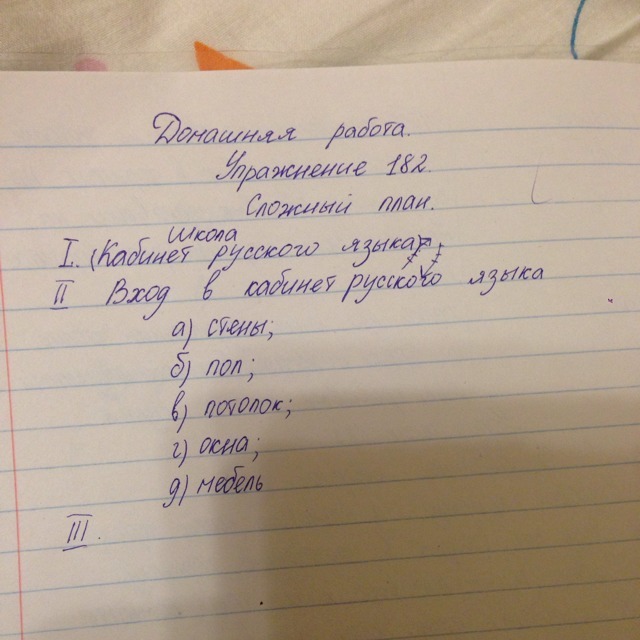 Домашняя работа.
Упражнение 182.
Сложный план.
Школа
I. (Кабинет русского языка);
II Вход в кабинет русского языка
а) стены;
б) пол;
в) потолок;
г) окна;
д) мебель
III.